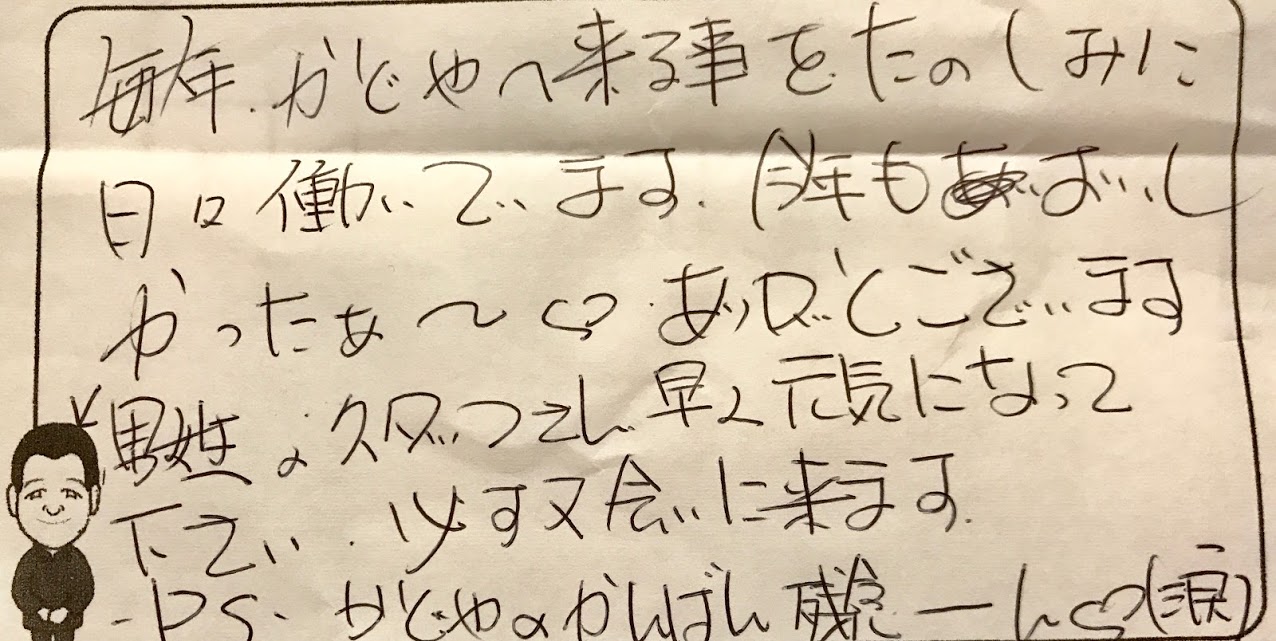 毎年、かどやへ来る事をたのしみに
日々働いています。今年もおいし
かったぁ〜♡ ありがとございます
男性のスタッフさん早く元気になって
下さい。必ず又会いに来ます。
PS. かどやのかんばん 残念ーん♡(涙)